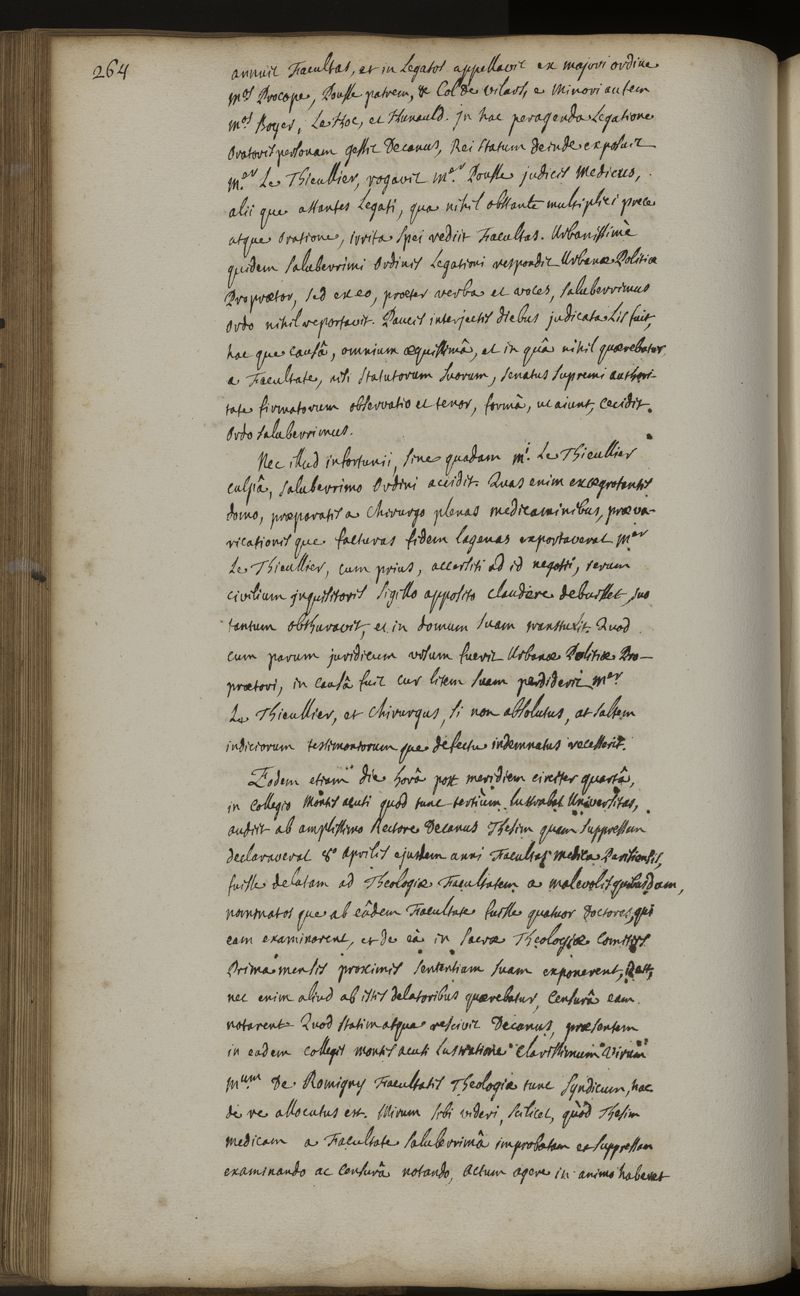 264
annuit Facultas, et in Legatos appellavit ex majori ordine
M.os Procope, Pousse patrem, & Col de vilars, e Minori autem
M.os Boyer, Le Hoc, et Hunauld. In hac peragenda Legatione
Oratoris personam gessit Decanus, Rei statum deinde exposuit
M.er Le Thieullier, rogavit M.er Pousse judicis Medicus,
alii que astantes Legati, qua nihil obstante multiplici prece
atque Oratione, irrita spei rediit Facultas. Urbanissimè
quidem saluberrimi Ordinis Legationi respondit Urbanæ Politiæ
Proprætor, sed ex eo, præter verba et voces, saluberrimus
Ordo nihil reportavit. Paucis interjectis diebus judicata Lis fuit,
hac que causâ, omnium æquissimâ, et in quâ nihil quærebatur
a Facultate, nisi statutorum suorum, senatus supremi authori-
tate firmatorum observatio et tenor, formâ, ut aiunt, cecidit
Ordo saluberrimus.
Nec illud infortunii, sine quadam M.i Le Thieullier
culpâ, saluberrimo Ordini accidit. Quas enim ex ægrotantis
domo, præparatis a Chirurgo plenas medicaminibus, præva-
ricationis que facturas fidem lagenas exportaverat M.er
Le Thieullier, cum prius, accersiti ad id negotii, rerum
civilium inquisitoris sigillo apposito claudere debuisset, suo
tantum obthuravit, et in domum suam transtulit. Quod
cum parum juridicum visum fuerit Urbanæ Politiæ Pro-
prætori, in causâ fuit cur litem suam perdiderit M.er
Le Thieullier, et Chirurgus, si non absolutus, at saltem
indiciorum testimoniorum que defectu indemnatus recesserit.
Eodem etiam die horâ post meridiem circiter quartâ,
in Collegio Montis acuti quod tunc tertiùm lustrabat Universitas,
audiit ab amplissimo Rectore Decanus Thesim quam suppressam
declaraverat 8.o Aprilis ejusdem anni Facultas medica Parisiensis,
fuisse delatam ad Theologiæ Facultatem a malevolis quibusdam,
nominatos que ab eâdem Facultate fuisse quatuor Doctores, qui
eam examinarent, et de eâ in sacræ Theologiæ Comitiis
Prima mensis proximis sententiam suam exponerent,
nec enim aliud ab istis delatoribus quærebatur, Censurâ eam
notarent. Quod statim atque rescivit Decanus, præsentem
in eadem Collegii montis acuti Lustratione Clarissimum Virum
M.um De Romigny Facultatis Theologiæ tunc Syndicum, hac
de re allocutus est. Mirum sibi videri, scilicet, quòd Thesim
medicam a Facultate saluberrimâ improbatam et suppressam
examinando ac Censurâ notando, actum agere in animo haberet